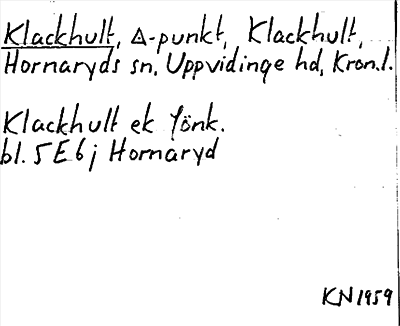 Klackhult, △-punkt, Klackhult,
Hornaryds sn, Uppvidinge hd, Kron.l.
Klackhult ek fönk.
bl. 5E6j Hornaryd
KN1959